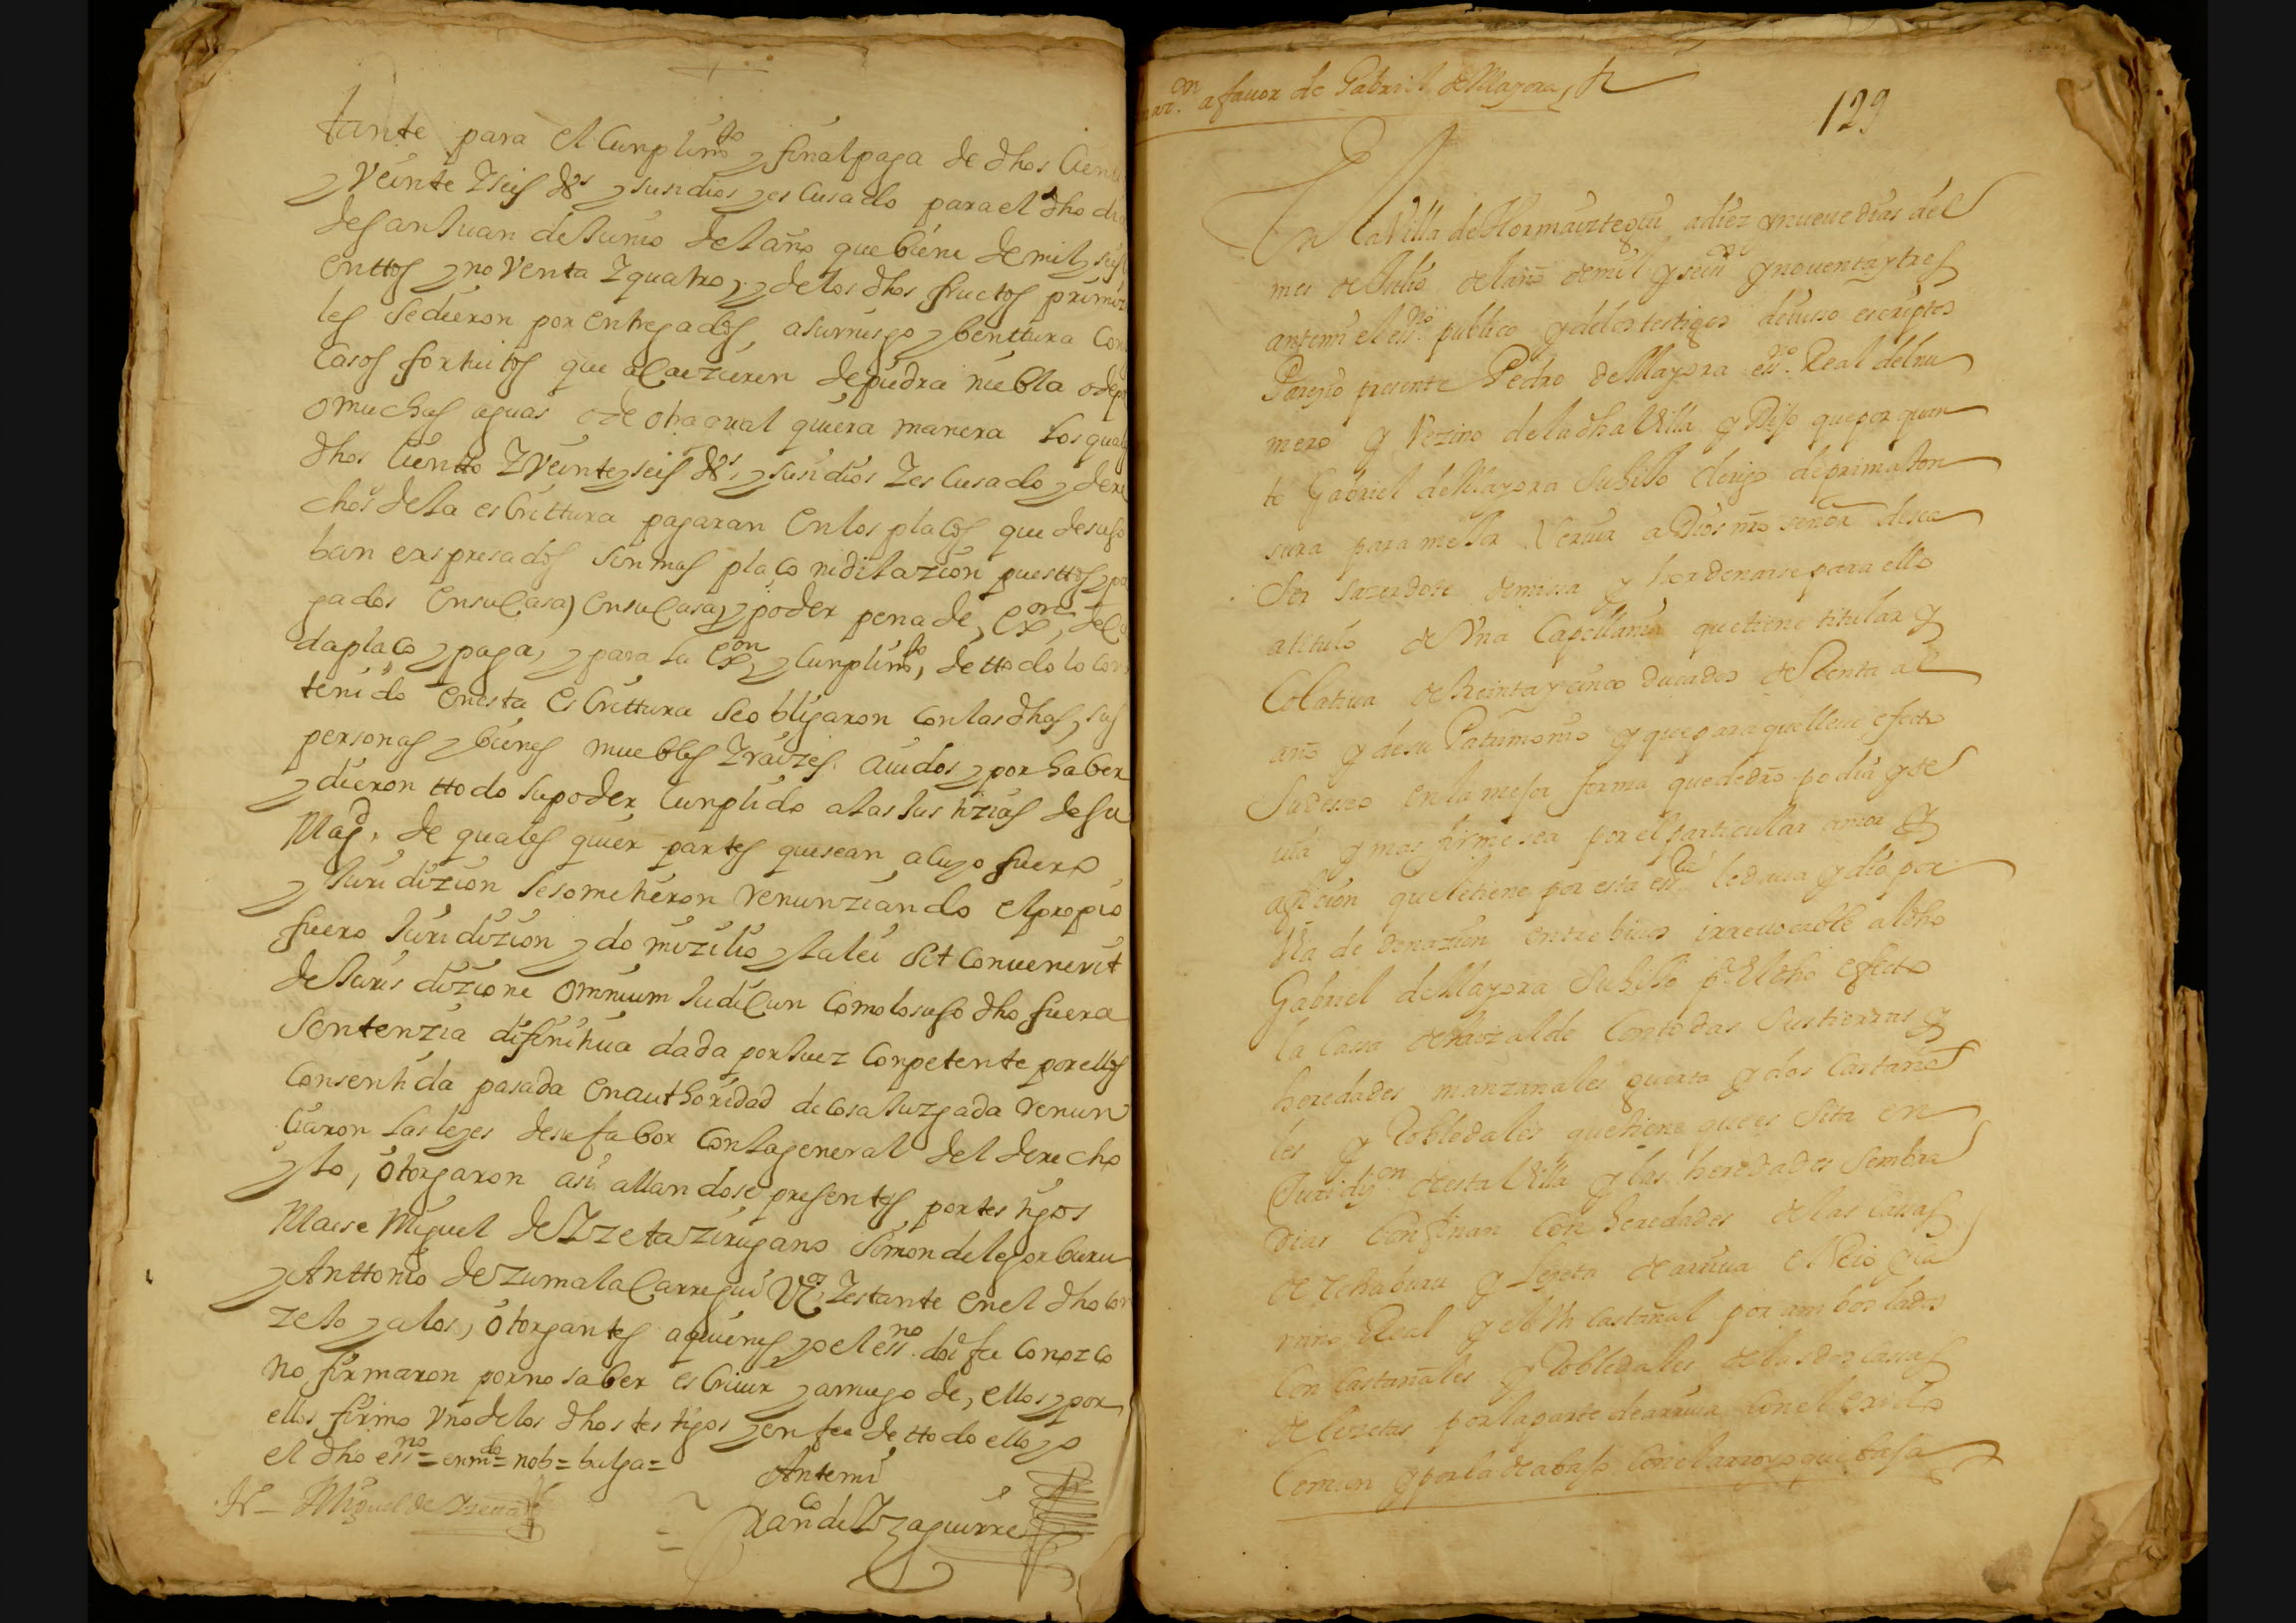 tante para el Cunplimto y final paga de dhos Cien
y Veinte Zseis ds y susidios y escusado para el dho dia
de san Juan de Junio del año que biene de mil y seis
enttos y noventa Zquatro, y de los dhos fructos primi
les sedieron por entregados, asurriesgo y benttura Con
Casos fortuitos que aCaezieren de piedra niebla o de
o muchas aguas o de otra qual quiera manera los quales
dhos Ciento ZVeinte y seis ds, y susidios Zescusado y dere
chos de la esCrittura pagaran en los plaços que desuso
ban expresados sin mas plaço ni dilazion puesttos y pa
gados ensuCasa y poder pena de, exon, de Ca
da plaço y paga, y para la exon y Cunplimto, de ttodo lo con
tenido en esta esCrittura se obligaron con las dhas, sus
personas y bienes muebles Zraizes. auidos y por haber
y dieron ttodo su poder Cunplido a las Justizias de su
Magd, de quales quier partes que sean a cuyo fuero
y Juridizion se sometieron renunziando el propio
fuero Juridizion y domizilio y la lei Sit Convenerit
de Jurisdizione omnium JudiCun Como lo suso dho fuera
Sentenzia difinitiua dada por Juez Conpetente por ellos
Consentida pasada en authoridad de cosa Juzgada renun
ciaron las leyes de su fabor Con la general del derecho
y lo, otorgaron asi allandose presentes por testigos
Maese Miguel de Yzeta zirugano Simon de legorburu
y Anttonio de zumalaCarregui Vos, Zestante en el dho con
zejo y a los, otorgantes a quienes yo el essno doi fee Conozco
no firmaron por no saber esCriuir y a rruego de, ellos y por
ellos firmo Vno de los dhos testigos y en fee de ttodo ello yo
el dho essno = enmdo = nob = balga =
Antemi
Miguel de Yzeta
Franco de Yzaguirre
on a fauor de Gabriel de Mayora,
129
En la Villa de Hormaiztegui a diez y nueue dias del
mes de Julio del año de mil y seis os y nouenta y tres
antemi el essno publico y de los testigos deiusso escriptos
Parezio presente Pedro de Mayora essno Real del nu
mero y Vezino de la dha Villa y Dijo que por quan
to Gabriel de Mayora Su hijo clerigo de prima ton
sura para mejor Seruir a Dios nro señor desea
Ser Sazerdote de missa y hordenarse para ello
a titulo de Vna Capellania que tiene titular y
Colatiua de treinta y cinco ducados de Renta al
año y de su Patrimonio y que para que lleue efecto
Su deseo en la mejor forma que de dro podia y de
uia y mas firme sea por el particullar amor y
aficion que le tiene por esta essra le daua y dio por
Via de donazion entre biuos irreuocable al dho
Gabriel de Mayora Su hijo pa el dho efecto
la Cassa de con todas Sus tierras y
heredades manzanales guerta y dos Castaña
les y Robledales que tiene que es Sita en
Juridion de esta Villa y las heredades Sembra
dias Confinan con heredades de las Cassas
de echaburu y de arriua el Rio y Ca
mino Real y el Vn Castañal por ambos lados
con Castañales y Robledales de las dos cassas
de por la parte de arriua con el exido
Comun y por la de abajo con el arroyo que baja